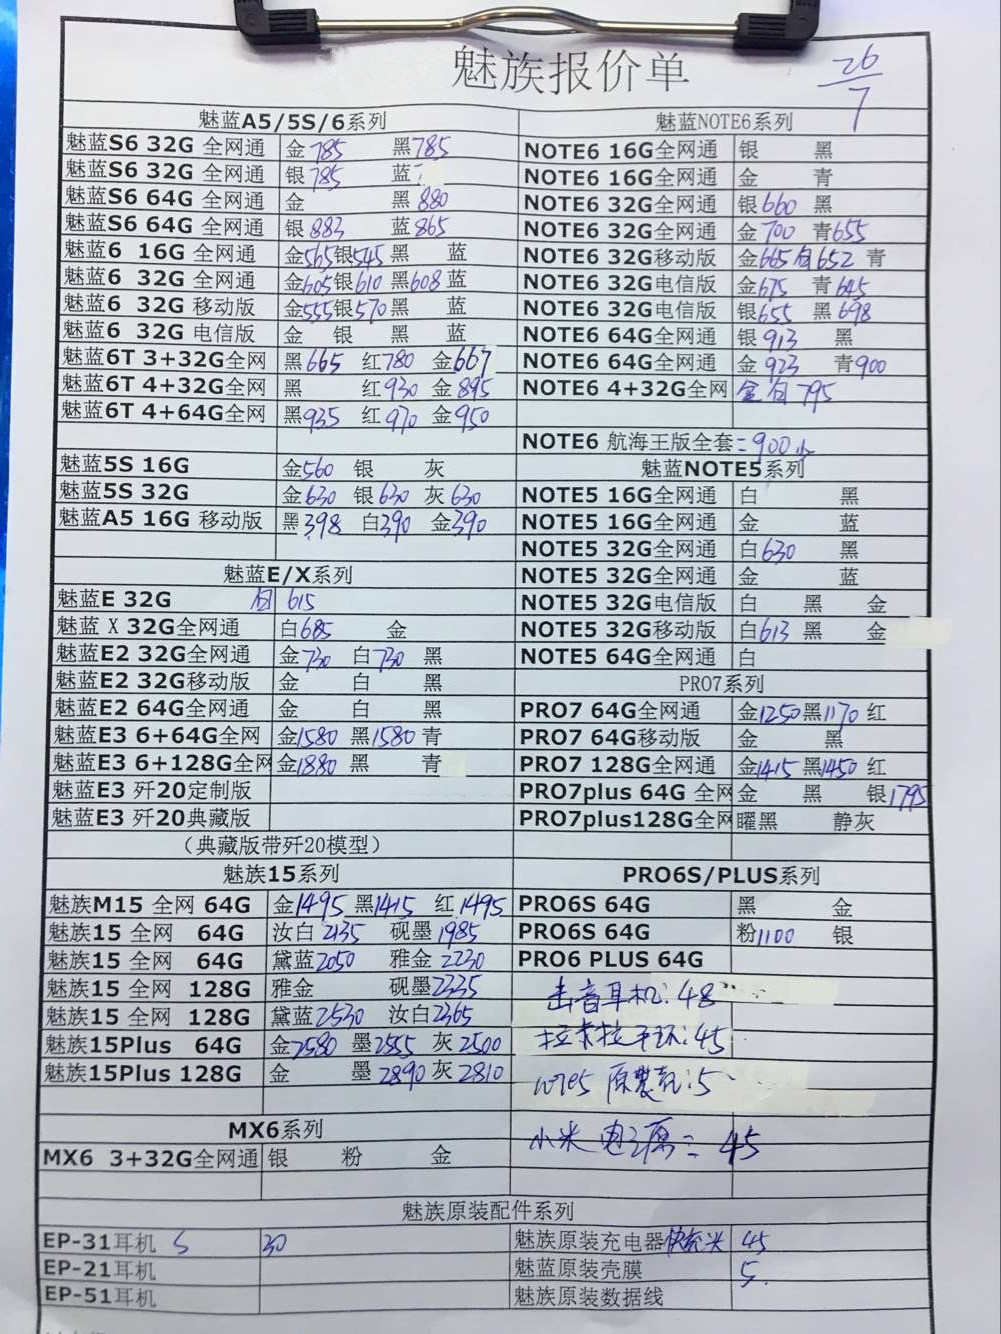 魅族报价单
26/7
魅蓝A5/5S/6系列
魅蓝S6 32G 全网通 金785 黑785
魅蓝S6 32G 全网通 银785 蓝
魅蓝S6 64G 全网通 金 黑880
魅蓝S6 64G 全网通 银883 蓝865
魅蓝6 16G 全网通 金565银545黑 蓝
魅蓝6 32G 全网通 金605银610黑608蓝
魅蓝6 32G 移动版 金555银570黑 蓝
魅蓝6 32G 电信版 金 银 黑 蓝
魅蓝6T 3+32G全网 黑665 红780 金667
魅蓝6T 4+32G全网 黑 红930 金895
魅蓝6T 4+64G全网 黑935 红970 金950
魅蓝5S 16G 金560 银 灰
魅蓝5S 32G 金630 银630 灰630
魅蓝A5 16G 移动版 黑398 白390 金390
魅蓝E/X系列
魅蓝E 32G 白 615
魅蓝 X 32G全网通 白685 金
魅蓝E2 32G全网通 金730 白730 黑
魅蓝E2 32G移动版 金 白 黑
魅蓝E2 64G全网通 金 白 黑
魅蓝E3 6+64G全网 金1580 黑1580 青
魅蓝E3 6+128G全网 金1880 黑 青
魅蓝E3 歼20定制版
魅蓝E3 歼20典藏版
（典藏版带歼20模型）
魅族15系列
魅族M15 全网 64G 金1495 黑1415 红1495
魅族15 全网 64G 汝白2135 砚墨1985
魅族15 全网 64G 黛蓝2050 雅金2230
魅族15 全网 128G 雅金 砚墨2335
魅族15 全网 128G 黛蓝2530 汝白2365
魅族15Plus 64G 金2580 墨2555 灰2500
魅族15Plus 128G 金 墨2890 灰2810
MX6系列
MX6 3+32G全网通 银 粉 金
魅蓝NOTE6系列
NOTE6 16G全网通 银 黑
NOTE6 16G全网通 金 青
NOTE6 32G全网通 银660 黑
NOTE6 32G全网通 金700 青655
NOTE6 32G移动版 金665白652 青
NOTE6 32G电信版 金675 青645
NOTE6 32G电信版 银655 黑698
NOTE6 64G全网通 银913 黑
NOTE6 64G全网通 金923 青900
NOTE6 4+32G全网 金 白 795
NOTE6 航海王版全套=900
魅蓝NOTE5系列
NOTE5 16G全网通 白 黑
NOTE5 16G全网通 金 蓝
NOTE5 32G全网通 白630 黑
NOTE5 32G全网通 金 蓝
NOTE5 32G电信版 白 黑 金
NOTE5 32G移动版 白613 黑 金
NOTE5 64G全网通 白
PRO7系列
PRO7 64G全网通 金1250黑1170 红
PRO7 64G移动版 金 黑
PRO7 128G全网通 金1415黑1450 红
PRO7plus 64G 全网 金 黑 银1795
PRO7plus128G全网 曜黑 静灰
PRO6S/PLUS系列
PRO6S 64G 黑 金
PRO6S 64G 粉1100 银
PRO6 PLUS 64G
击音耳机:48
拉卡拉手环:45
note5 原装
小米 电源=45
魅族原装配件系列
EP-31耳机 5 30
EP-21耳机
EP-51耳机
魅族原装充电器快充 45
魅蓝原装壳膜 5.
魅族原装数据线